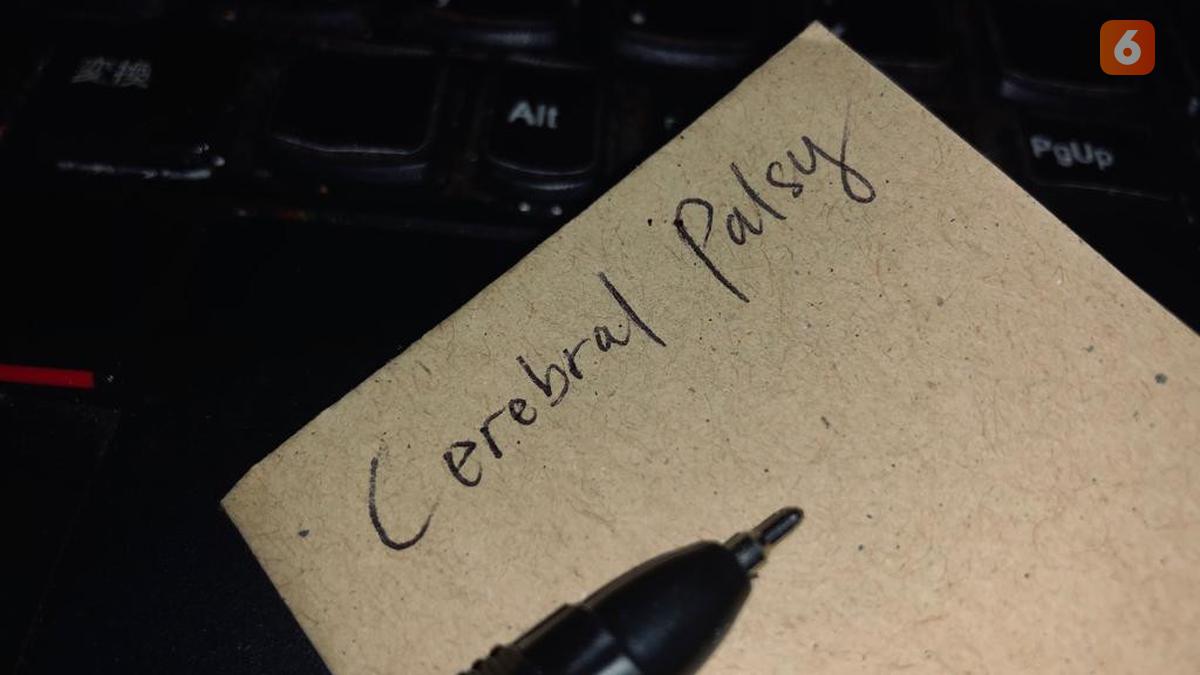 6
変換
Alt
PgUp
Cerebral Palsy